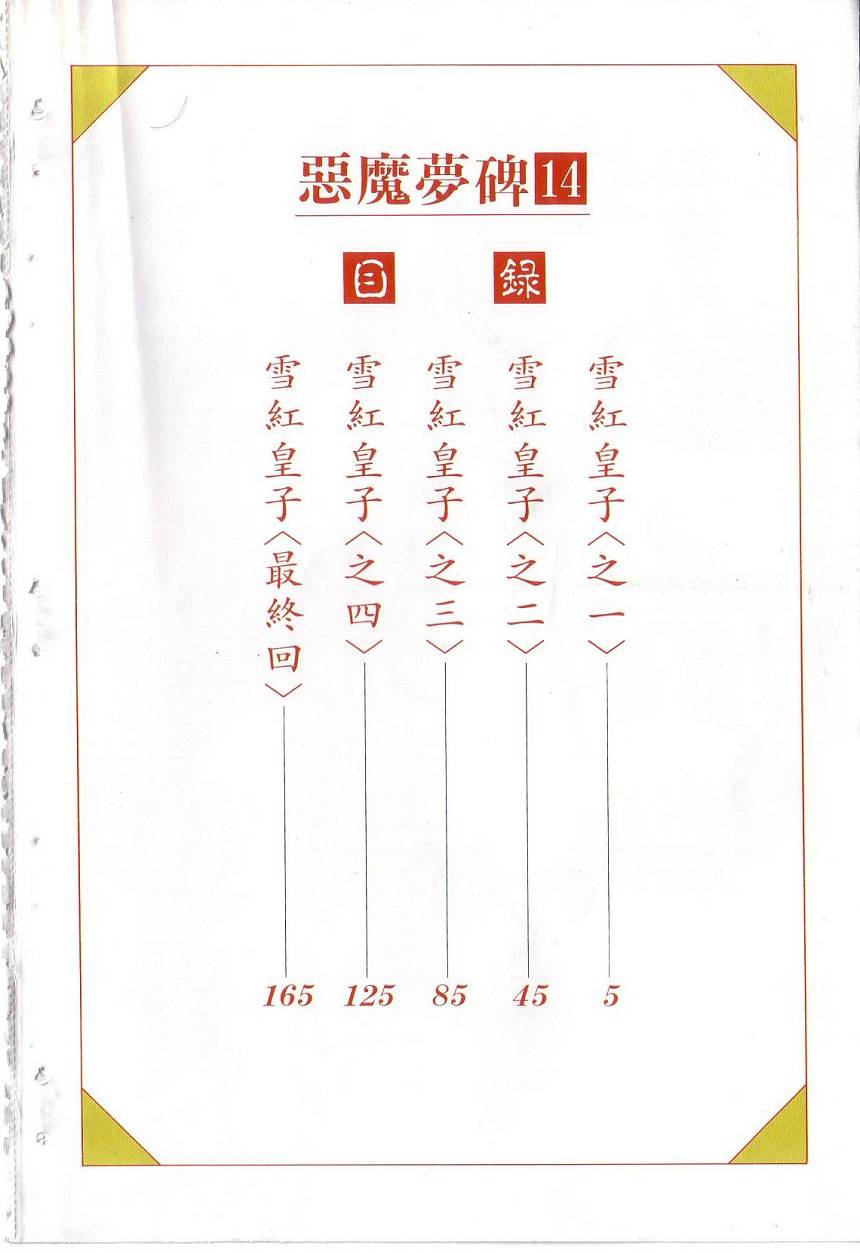 惡魔夢碑14
目錄
雪紅皇子〈之一〉 5
雪紅皇子〈之二〉 45
雪紅皇子〈之三〉 85
雪紅皇子〈之四〉 125
雪紅皇子〈最終回〉 165